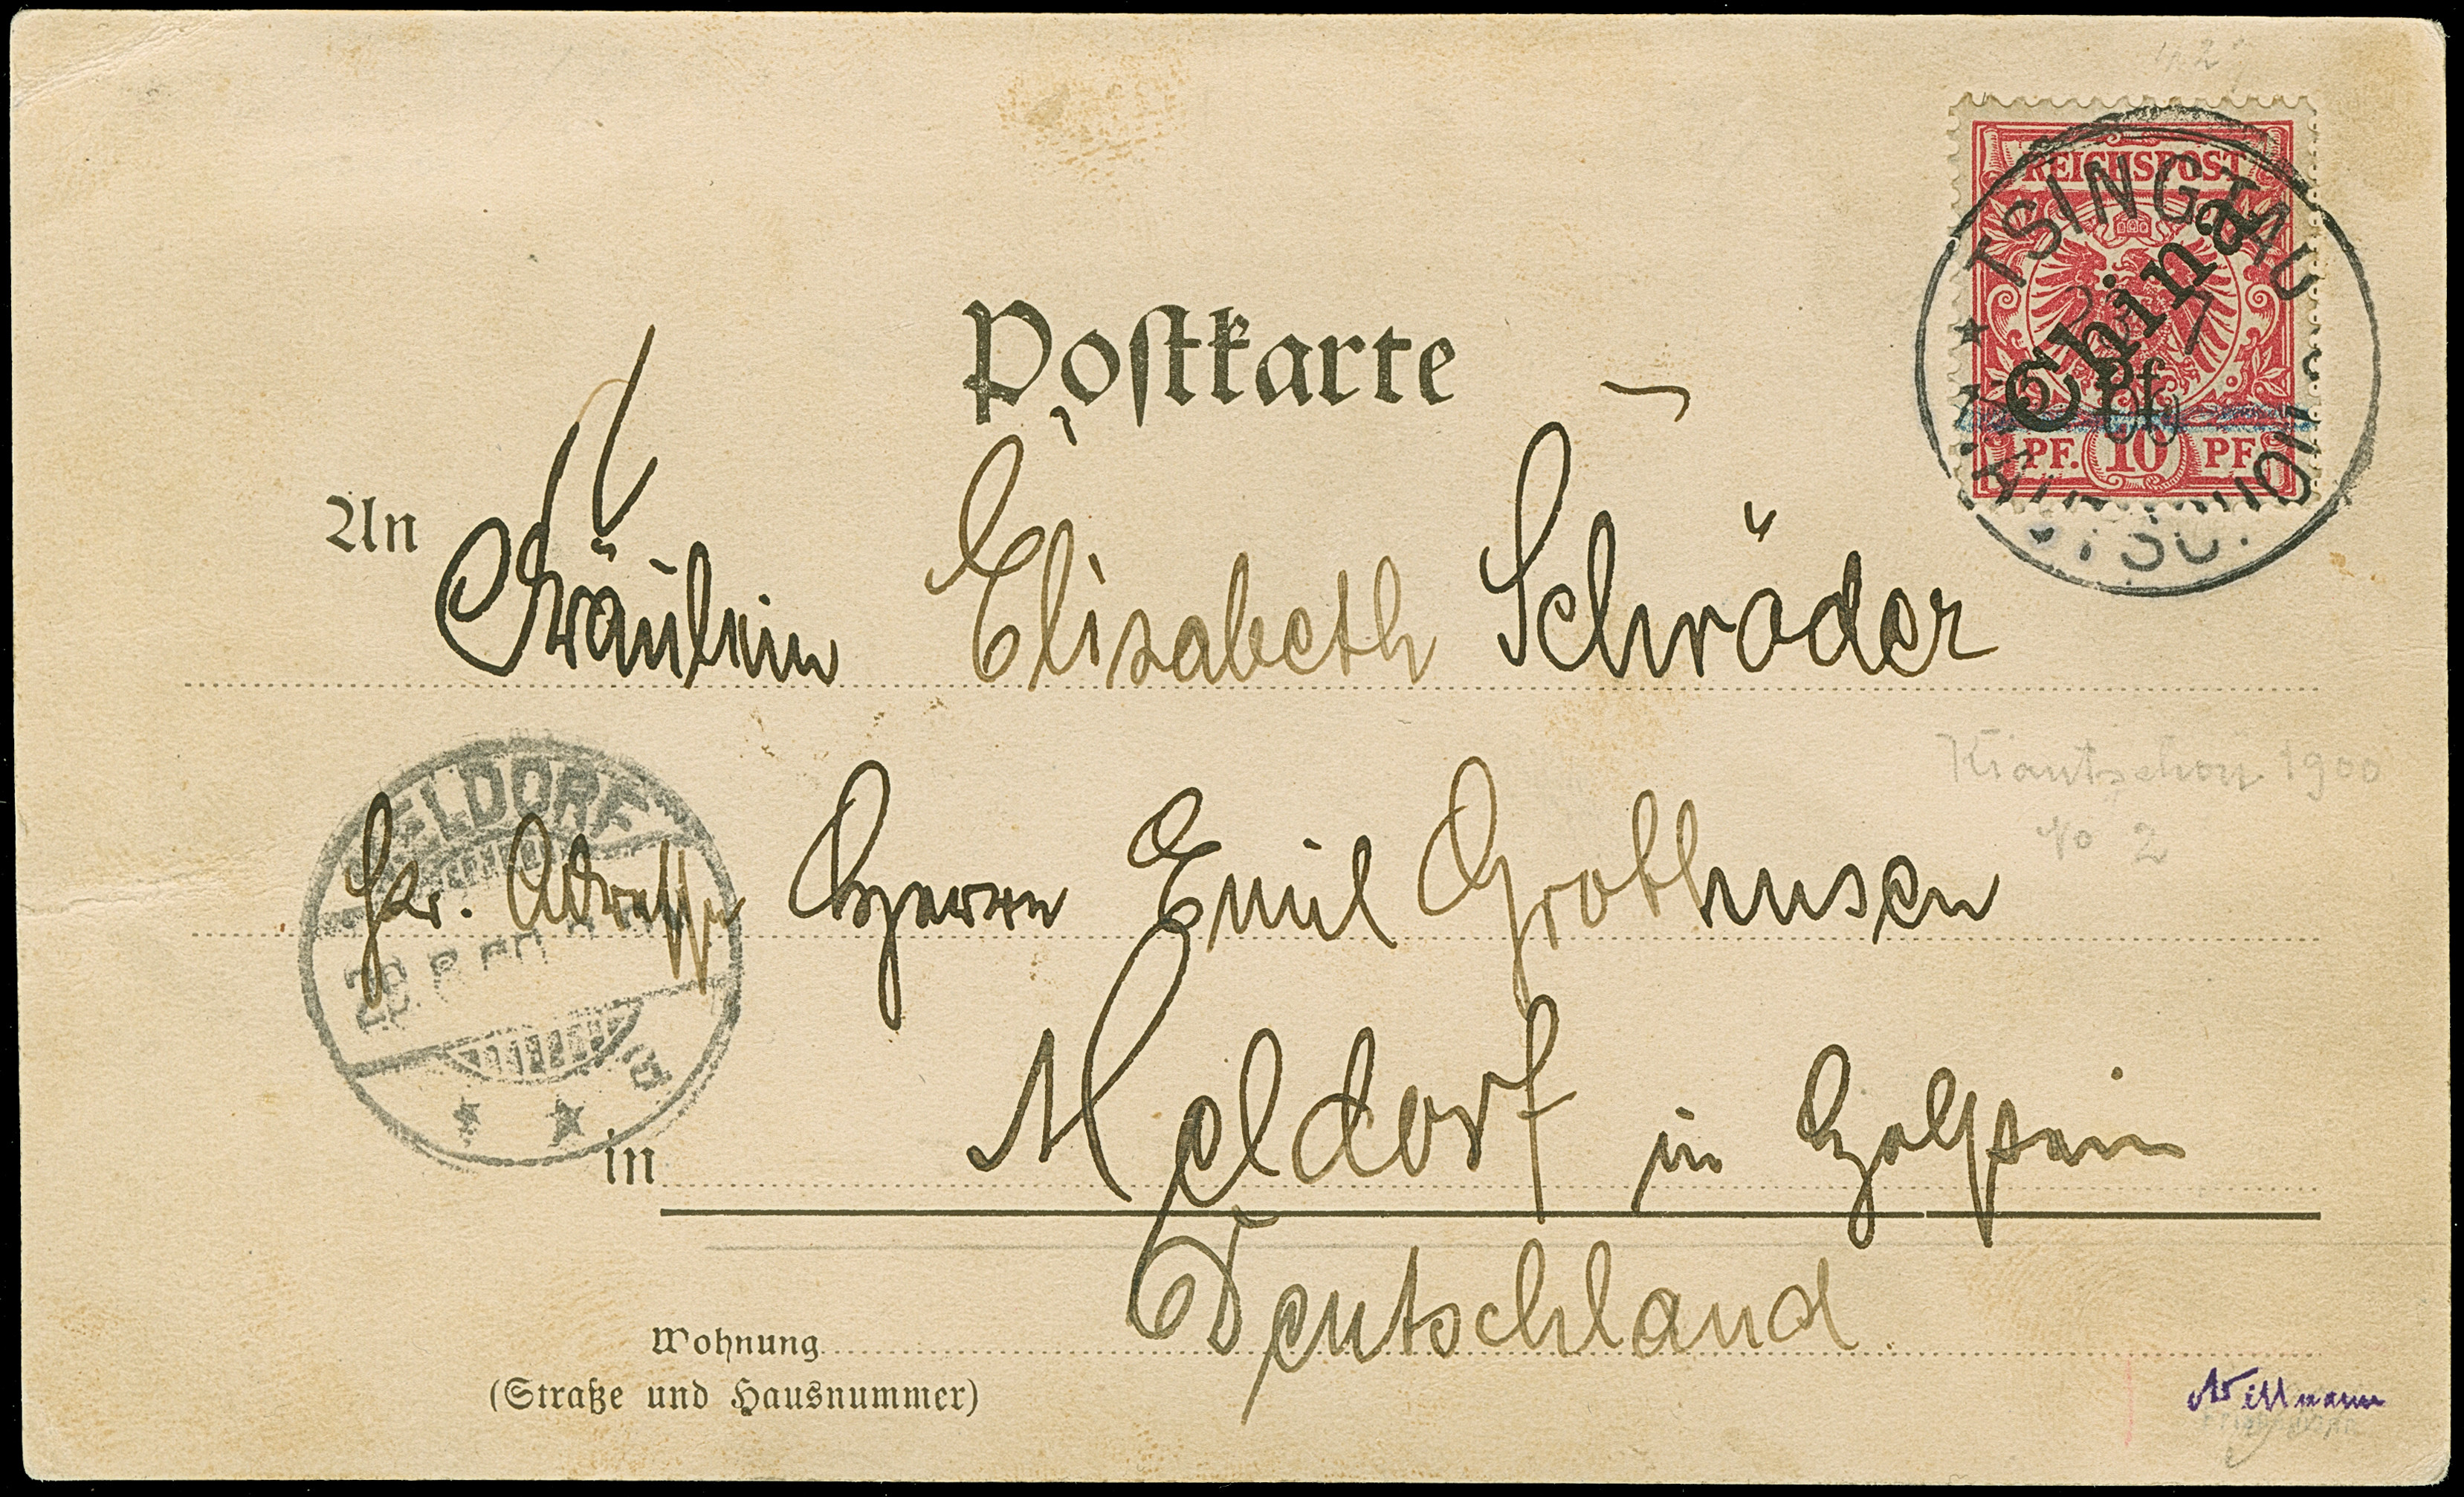 REICHSPOST
China
5 Pf
PF. 10 PF.
TSINGTAU
Postkarte
An Fräulein Elisabeth Schröder
Kiautschou 1900
No 2
MELDORF
29.8.00
Adresse Herrn Emil Grothusen
in Meldorf in Holstein
Deutschland.
Wohnung
(Straße und Hausnummer)